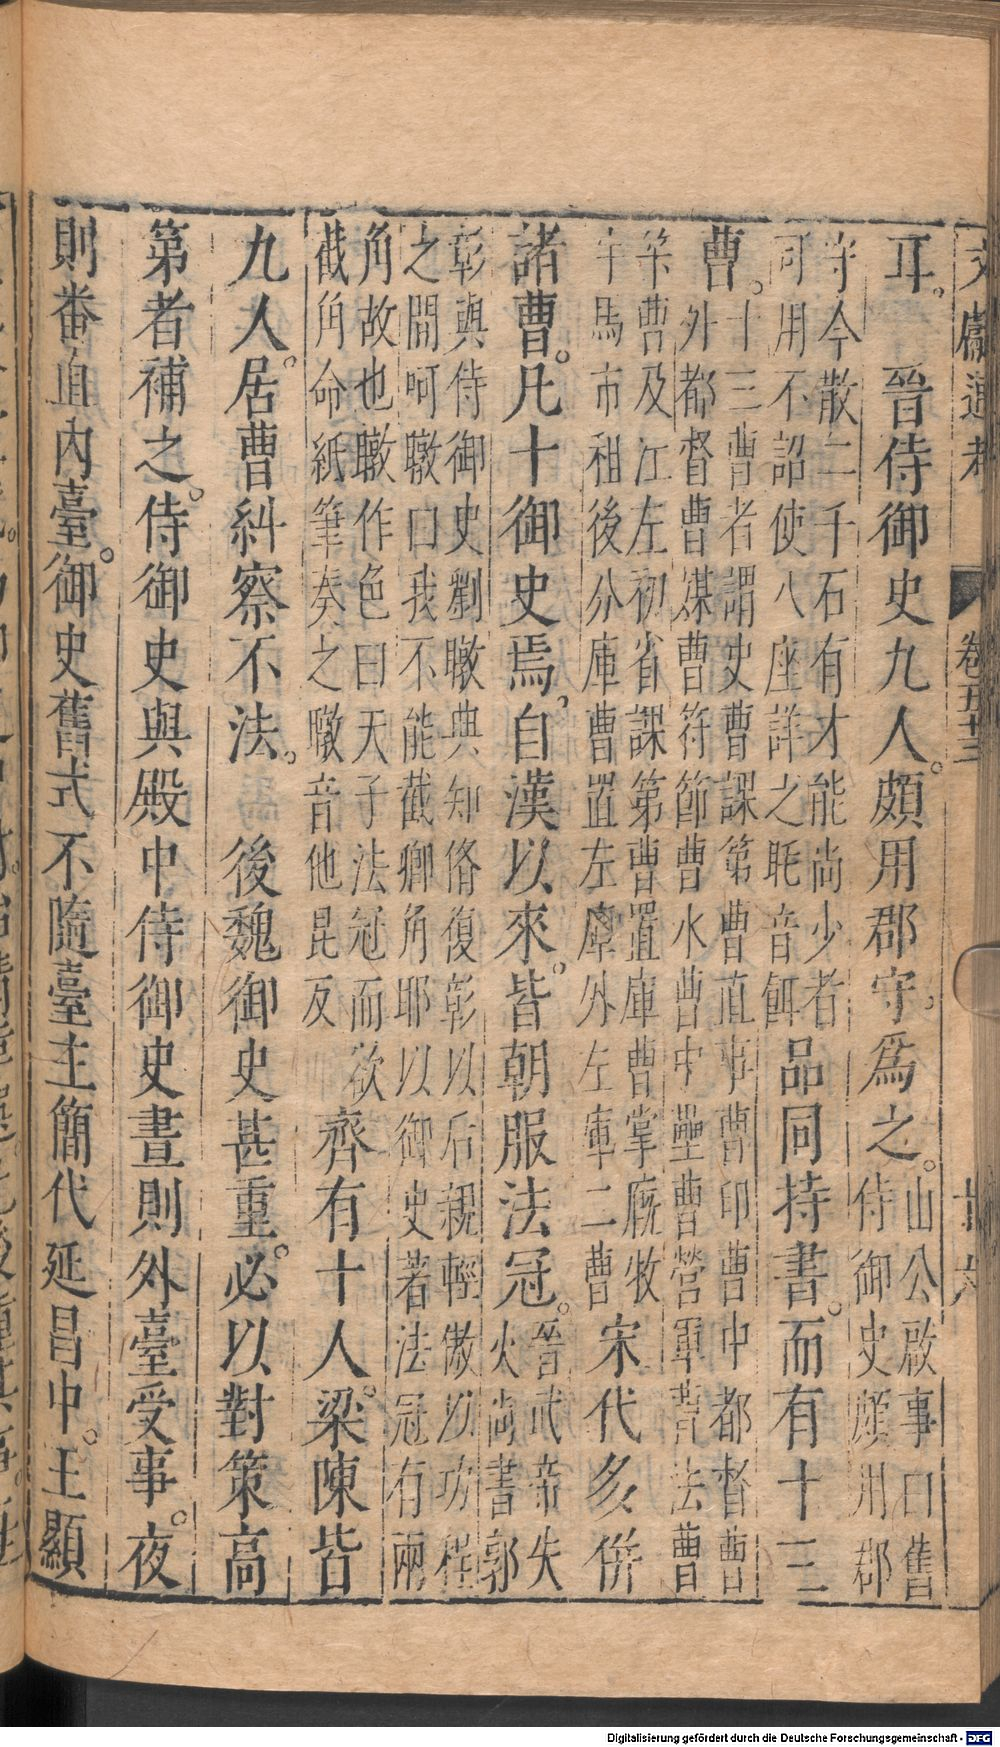 文獻通考 卷五十三 十六
耳。 晉侍御史九人。頗用郡守。爲之。山公啟事曰舊
侍御史頗用郡
守今散二千石有才能尚少者
可用不詔使八座詳之 耗音餌 品同持書。而有十三
曹。十三曹者謂吏曹課第曹直事曹印曹中都督曹
外都督曹媒曹符節曹水曹中壘曹營軍曹法曹
筭曹及江左初省課第曹置庫曹掌廄牧
牛馬市租後分庫曹置左庫外左庫二曹 宋代多併
諸曹。凡十御史焉。自漢以來。皆朝服法冠。晉武帝失
火尚書郭
彰與侍御史劉暾典知脩復彰以后親輕傲以功程
之間呵暾曰我不能截卿角耶以御史著法冠有兩
角故也暾作色曰天子法冠而欲
截角命紙筆奏之暾音他昆反 齊有十人。梁陳皆
九人。居曹糾察不法。 後魏御史甚重。必以對策高
第者補之。侍御史與殿中侍御史晝則外臺受事。夜
則番直內臺。御史舊式不隨臺主簡代延昌中。王顯
Digitalisierung gefördert durch die Deutsche Forschungsgemeinschaft - DFG